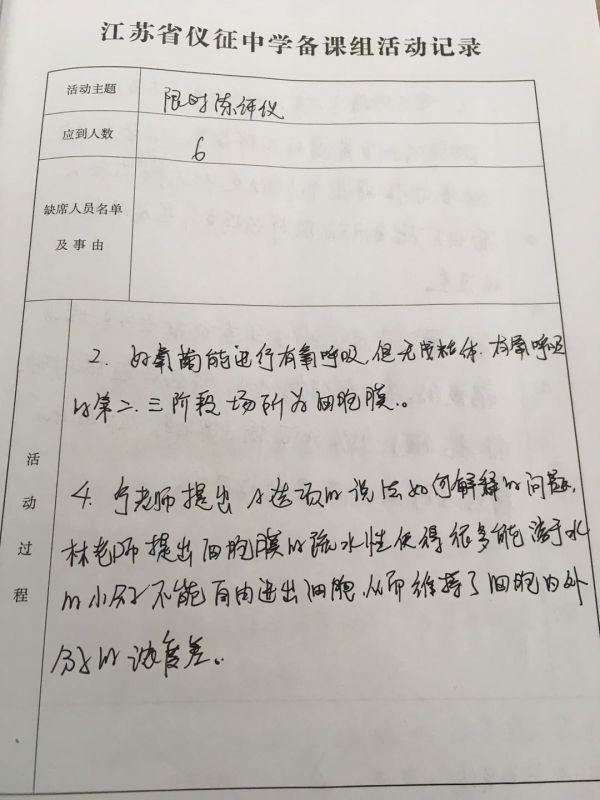 江苏省仪征中学备课组活动记录
活动主题
限时练评议
应到人数
6
缺席人员名单
及事由
活动过程
2. 好氧菌能进行有氧呼吸,但无线粒体.有氧呼吸
的第二.三阶段场所为细胞膜。
4. 老师提出A选项的说法如何解释的问题,
林老师提出细胞膜的疏水性使得很多能溶于水
的小分子不能自由进出细胞,从而维持了细胞内外
分子的浓度差。